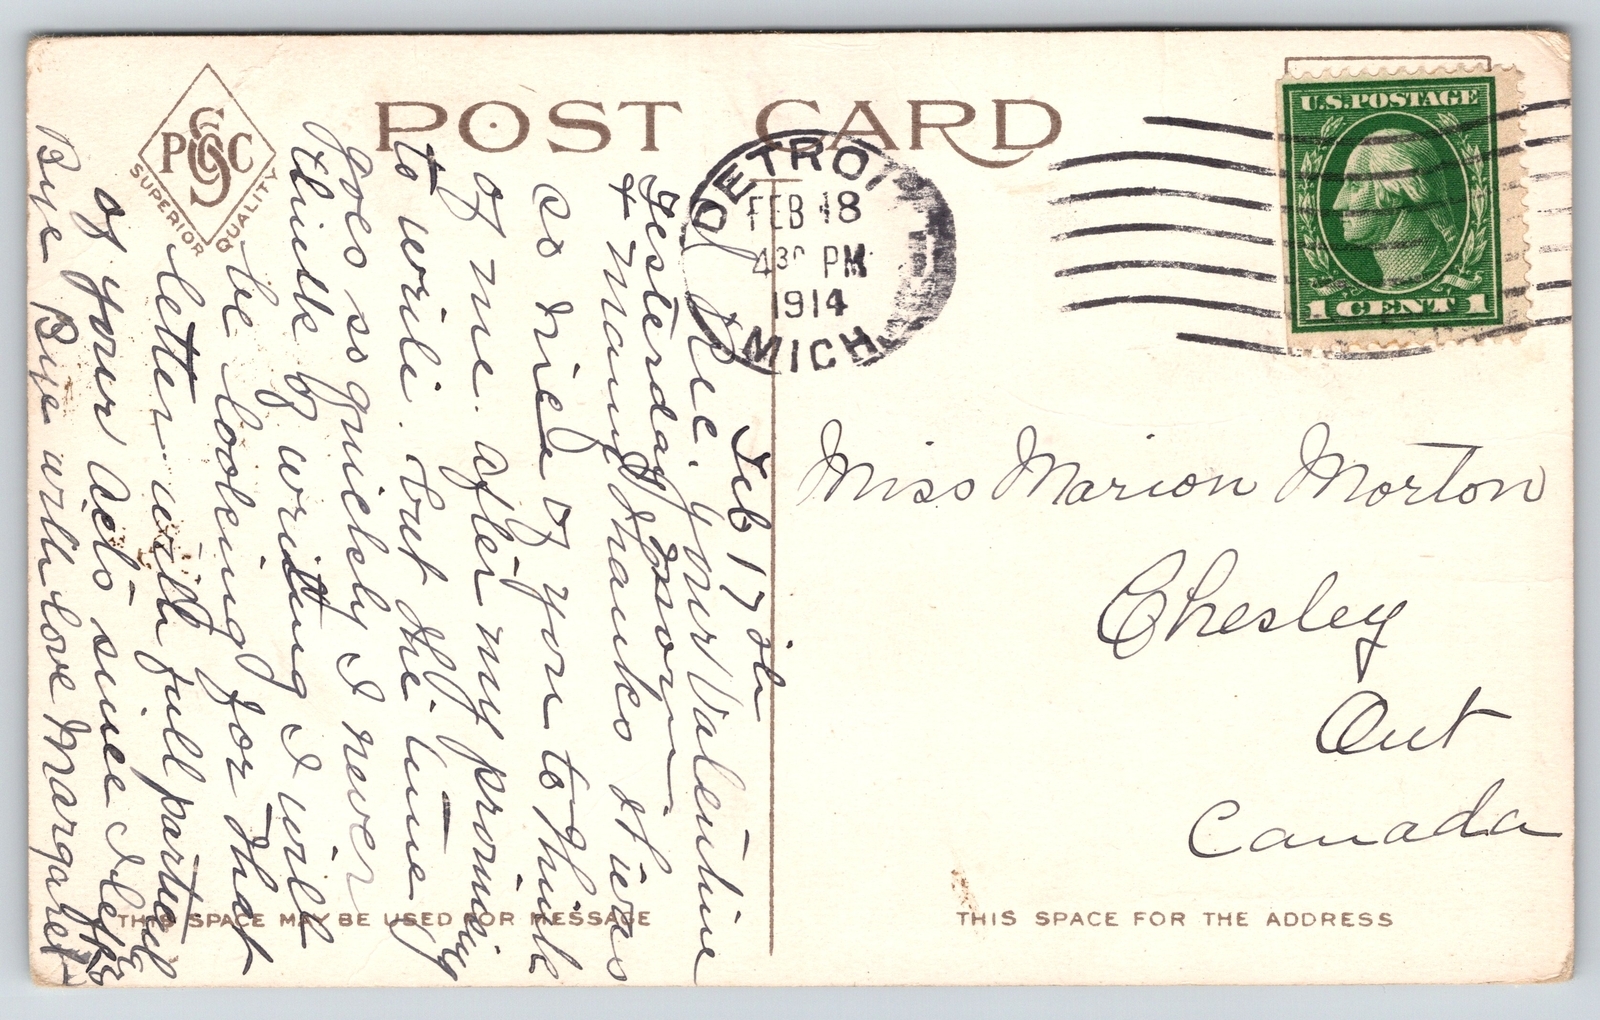 POST CARD
PSC
SUPERIOR QUALITY
DETROIT
FEB 18
4 30 PM
1914
MICH.
U.S. POSTAGE
1 CENT 1
Feb 17 th
Rec. your Valentine
Yesterday morn.
& many thanks it was
so nice of you to think
of me. after my promising
to write. but the time
goes so quickly I never
think of writing I will
be looking for that
letter with full particul
of your acts since I left
Bye Bye with love Margaret
Miss Marion Morton
Chesley
Ont
Canada
THIS SPACE MAY BE USED FOR MESSAGE
THIS SPACE FOR THE ADDRESS